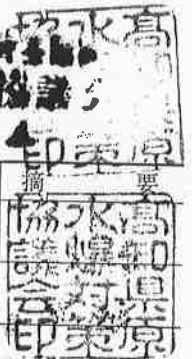 高 原
水 策
協議 印
摘要
高知県原
水爆対策
協議会印